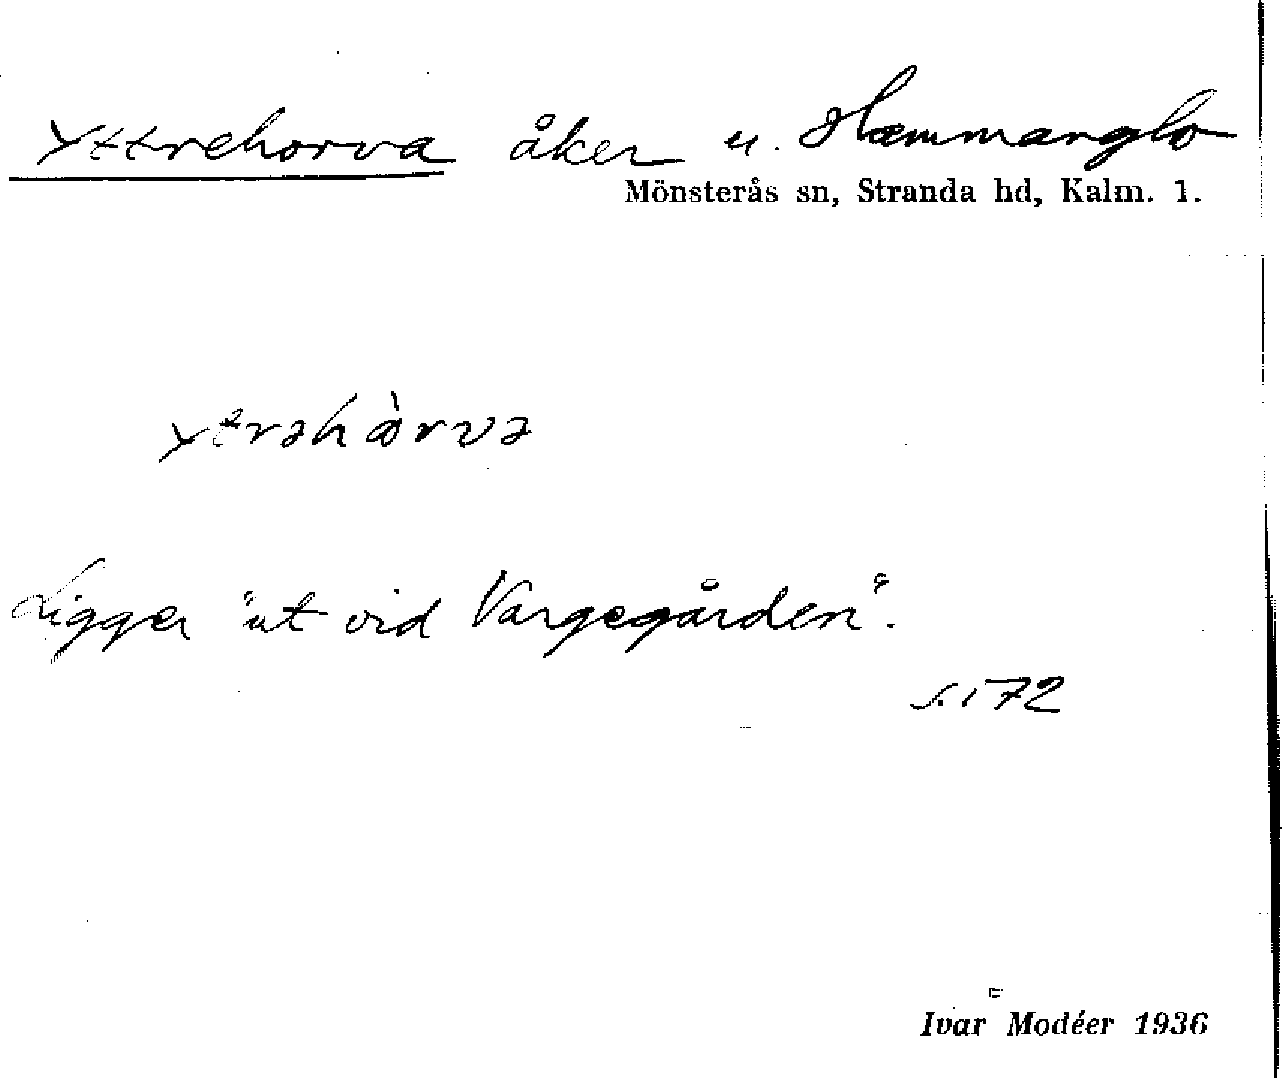 Yttrehorva åker u. Hammanglo
Mönsterås sn, Stranda hd, Kalm. l.
ytrəhòrvə
Ligger "ut vid Vargegården".
s. 172
Ivar Modéer 1936